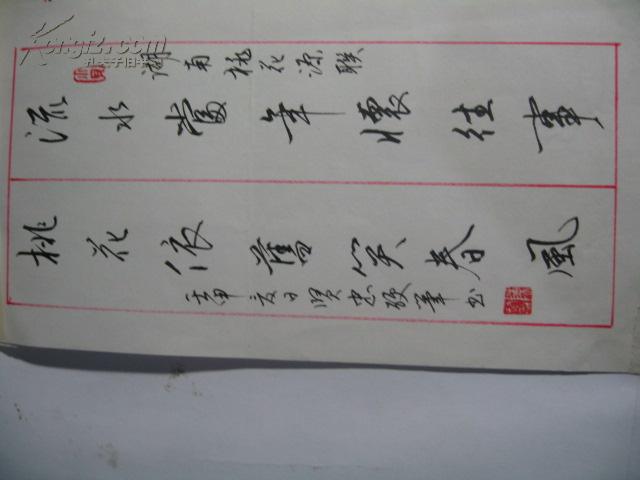 湖南桃花源联
流水當年懷往事
桃花依舊笑春風
壬申夏日贤忠硬筆书
Kongfz.com
孔夫子旧书网